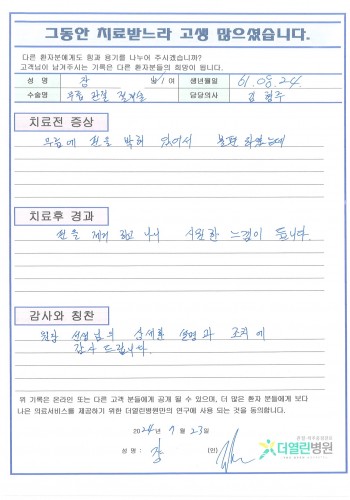 그동안 치료받느라 고생 많으셨습니다.
다른 환자분에게도 힘과 용기를 나누어 주시겠습니까?
고객님이 남겨주시는 기록은 다른 환자분들의 희망이 됩니다.
성 명 장 남/여 생년월일 61.08.24
수술명 무릎 관절 담당의사 김형주
치료전 증상
무릎에 핀을 박혀 있어서 불편하였는데
치료후 경과
핀을 제거 하고 나니 시원한 느낌이 듭니다.
감사와 칭찬
원장 선생님의 상세한 설명과 조치에
감사 드립니다.
위 기록은 온라인 또는 다른 고객 분들에게 공개 될 수 있으며, 더 많은 환자 분들에게 보다
나은 의료서비스를 제공하기 위한 더열린병원만의 연구에 사용 되는 것을 동의합니다.
2024년 7월 23일
성 명 : 장 (인)
더열린병원